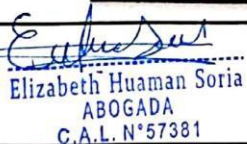 Elizabeth Huaman Soria
ABOGADA
C.A.L. N°57381